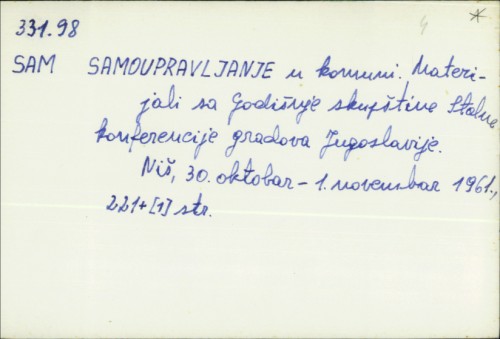 331.98
SAM SAMOUPRAVLJANJE u komuni. Materi-
jali sa Godišnje skupštine Stalne
konferencije gradova Jugoslavije.
Niš, 30. oktobar - 1. novembar 1961.,
221+[1] str.